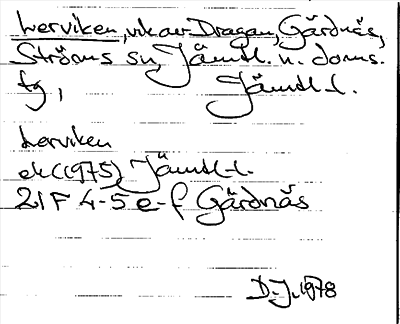 Lerviken, vik av Dragan, Gärdnäs,
Ströms sn, Jämtl. n. doms.
fg, Jämtl. l.
Lerviken
ek (1975) Jämtl. l.
21F 4-5 e-f Gärdnäs
D.J. 1978